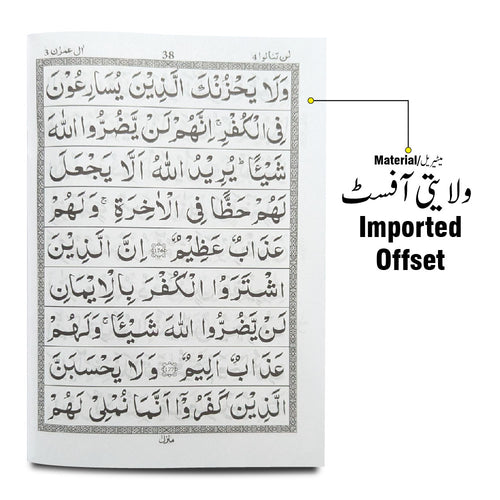 اٰل عمرٰن 3
38
لن تنالوا 4
وَلَا يَحْزُنْكَ الَّذِيْنَ يُسَارِعُوْنَ
فِى الْكُفْرِ ۚ اِنَّهُمْ لَنْ يَّضُرُّوا اللّٰهَ
شَيْـًٔا ؕ يُرِيْدُ اللّٰهُ اَلَّا يَجْعَلَ
لَهُمْ حَظًّا فِى الْاٰخِرَةِ ۚ وَلَهُمْ
عَذَابٌ عَظِيْمٌ ﴿۱۷۶﴾ اِنَّ الَّذِيْنَ
اشْتَرَوُا الْكُفْرَ بِالْاِيْمَانِ
لَنْ يَّضُرُّوا اللّٰهَ شَيْـًٔا ۚ وَلَهُمْ
عَذَابٌ اَلِيْمٌ ﴿۱۷۷﴾ وَلَا يَحْسَبَنَّ
الَّذِيْنَ كَفَرُوْۤا اَنَّمَا نُمْلِىْ لَهُمْ
Material/میٹیریل
ولایتی آفسٹ
Imported
Offset